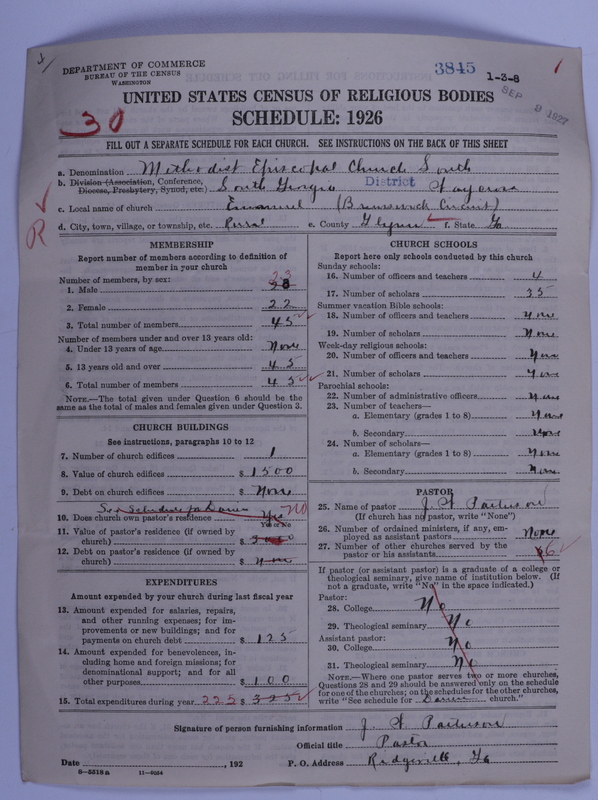 DEPARTMENT OF COMMERCE
BUREAU OF THE CENSUS
WASHINGTON
3845
1-3-8
SEP 9 1927
UNITED STATES CENSUS OF RELIGIOUS BODIES
30
SCHEDULE: 1926
FILL OUT A SEPARATE SCHEDULE FOR EACH CHURCH. SEE INSTRUCTIONS ON THE BACK OF THIS SHEET
a. Denomination Methodist Episcopal Church South
b. Division (Association, Conference, Diocese, Presbytery, Synod, etc.) South Georgia District Waycross
c. Local name of church Emanuel (Brunswick Circuit)
R
d. City, town, village, or township, etc. Rural e. County Glynn f. State Ga
MEMBERSHIP
Report number of members according to definition of
member in your church
Number of members, by sex:
1. Male 23
2. Female 22
3. Total number of members 45
Number of members under and over 13 years old:
4. Under 13 years of age None
5. 13 years old and over 45
6. Total number of members 45
NOTE.—The total given under Question 6 should be
same as the total of males and females given under Question 3.
CHURCH BUILDINGS
See instructions, paragraphs 10 to 12
7. Number of church edifices 1
8. Value of church edifices $ 1500
9. Debt on church edifices $ None
See Schedule for Darien
10. Does church own pastor's residence Yes no
Yes or No
11. Value of pastor's residence (if owned by
church) $
12. Debt on pastor's residence (if owned by
church) $ None
EXPENDITURES
Amount expended by your church during last fiscal year
13. Amount expended for salaries, repairs,
and other running expenses; for im-
provements or new buildings; and for
payments on church debt $ 125
14. Amount expended for benevolences, in-
cluding home and foreign missions; for
denominational support; and for all
other purposes $ 100
15. Total expenditures during year 225 $ 325
CHURCH SCHOOLS
Report here only schools conducted by this church
Sunday schools:
16. Number of officers and teachers 4
17. Number of scholars 35
Summer vacation Bible schools:
18. Number of officers and teachers None
19. Number of scholars None
Week-day religious schools:
20. Number of officers and teachers None
21. Number of scholars None
Parochial schools:
22. Number of administrative officers None
23. Number of teachers—
a. Elementary (grades 1 to 8) None
b. Secondary None
24. Number of scholars—
a. Elementary (grades 1 to 8) None
b. Secondary None
PASTOR
25. Name of pastor J. A.
(If church has no pastor, write "None")
26. Number of ordained ministers, if any, em-
ployed as assistant pastors None
27. Number of other churches served by the
pastor or his assistants 6
If pastor (or assistant pastor) is a graduate of a college or
theological seminary, give name of institution below. (If
not a graduate, write "No" in the space indicated.)
Pastor:
28. College No
29. Theological seminary No
Assistant pastor:
30. College No
31. Theological seminary No
NOTE.—Where one pastor serves two or more churches,
Questions 28 and 29 should be answered only on the schedule
for one of the churches; on the schedules for the other churches,
write "See schedule for Darien church."
Signature of person furnishing information J. A.
Official title Pastor
Date , 192 P. O. Address Ridgeville, Ga
8-5518a 11-9054